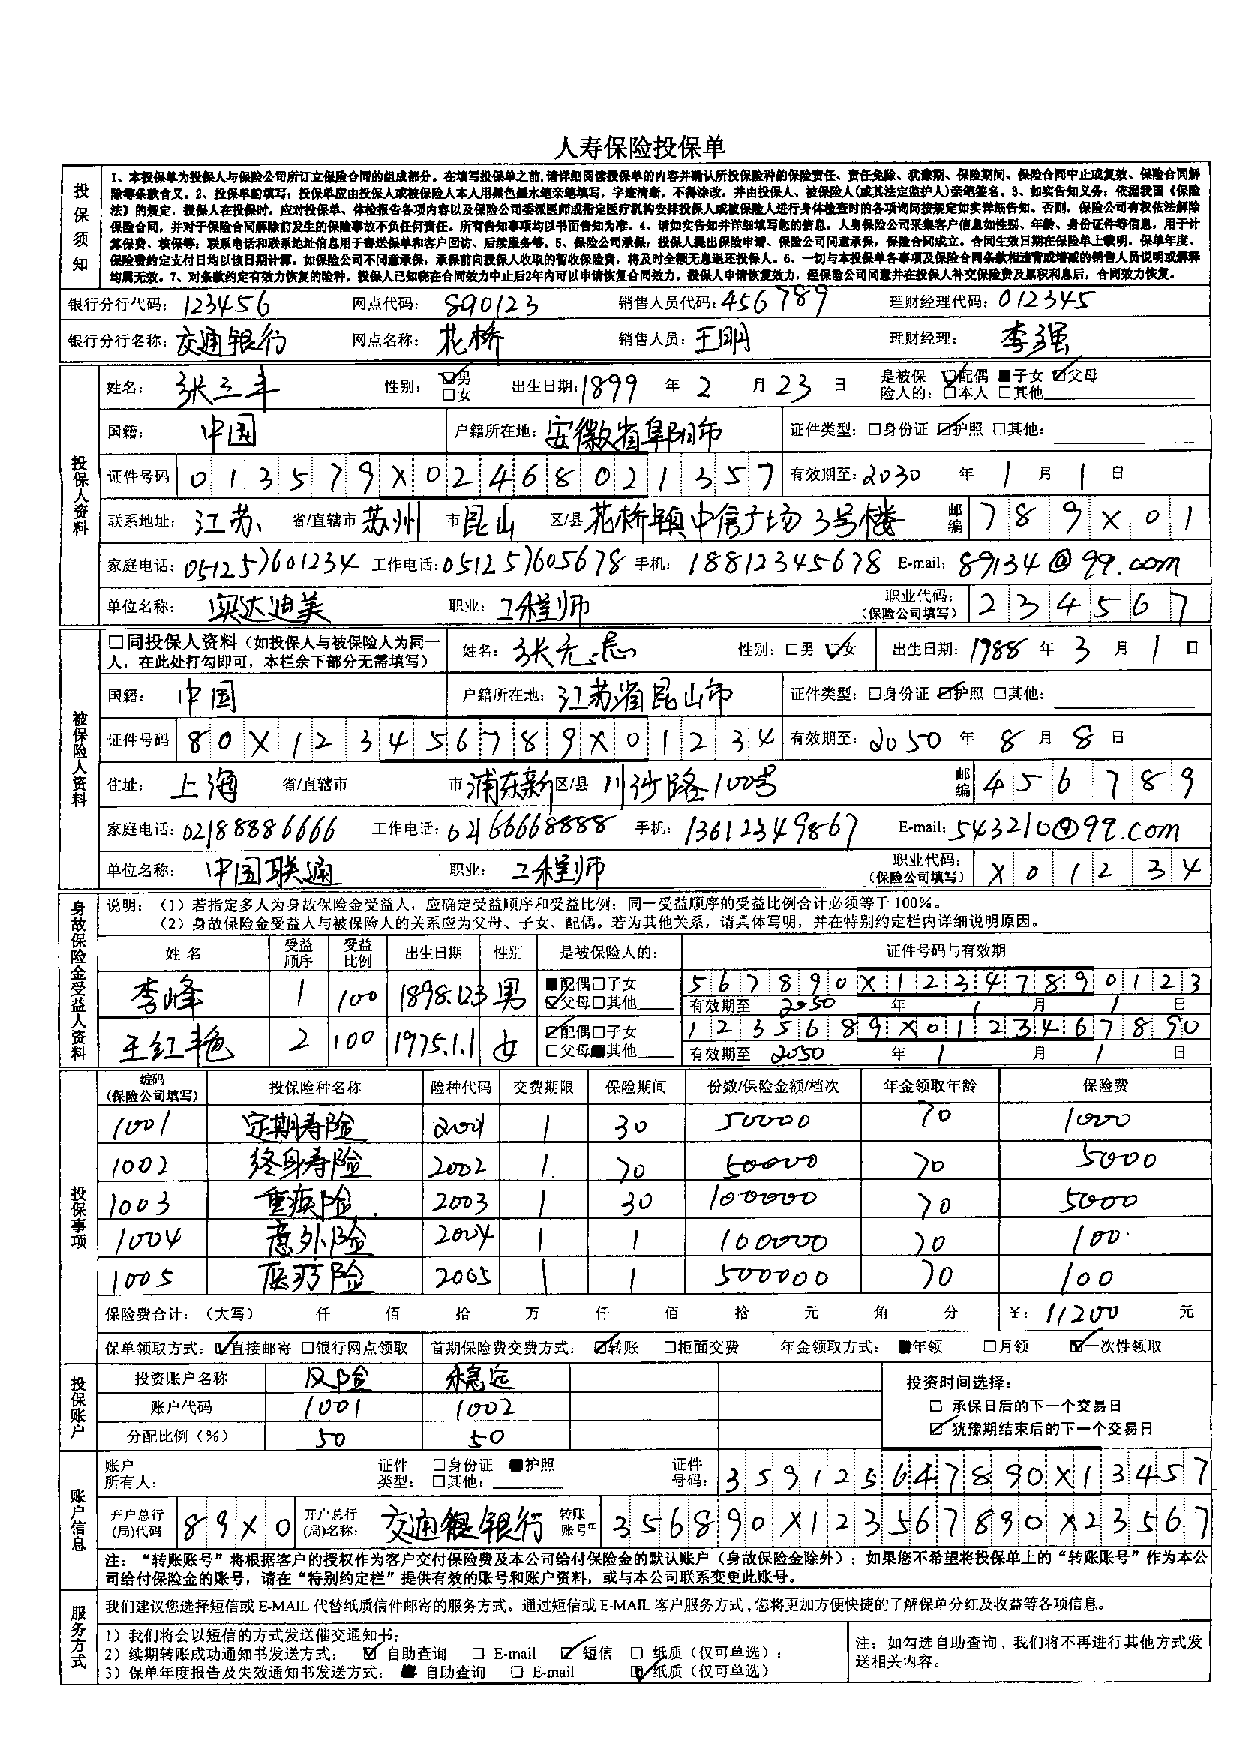 人寿保险投保单
投保须知
1、本投保单为投保人与保险公司所订立保险合同的组成部分。在填写投保单之前,请详细阅读投保单的内容并确认所投保险种的保险责任、责任免除、犹豫期、保险期间、保险合同中止或复效、保险合同解
除等条款含义。2、投保单的填写：投保单应由投保人或被保险人本人用黑色墨水笔亲笔填写，字迹清晰，不得涂改，并由投保人、被保险人(或其法定监护人)亲笔签名。3、如实告知义务：依据我国《保险
法》的规定，投保人在投保时，应对投保单、体检报告各项内容以及保险公司委派医师或指定医疗机构安排投保人或被保险人进行身体检查时的各项询问按规定如实详细告知。否则，保险公司有权依法解除
保险合同，并对于保险合同解除前发生的保险事故不负任何责任。所有告知事项均以书面告知为准。4、请如实告知并详细填写您的信息。人寿保险公司采集客户信息如性别、年龄、身份证件等信息，用于计
算保费、核保等；联系电话和联系地址信息用于寄送保单和客户回访、后续服务等。5、保险公司承保：投保人提出保险申请、保险公司同意承保，保险合同成立。合同生效日期在保险单上载明。保单年度、
保险费约定支付日均以该日期计算。如保险公司不同意承保，承保前向投保人收取的暂收保险费，将及时全额无息退还投保人。6、一切与本投保单各事项及保险合同条款相违背或增减的销售人员说明或解释
均属无效。7、对条款约定有效力恢复的险种，投保人已知晓在合同效力中止后2年内可以申请恢复合同效力，投保人申请恢复效力，经保险公司同意并在投保人补交保险费及累积利息后，合同效力恢复。
银行分行代码：123456 网点代码：890123 销售人员代码：456789 理财经理代码：012345
银行分行名称：交通银行 网点名称：花桥 销售人员：王明 理财经理：李强
投保人资料
姓名：张三丰 性别：☑男 □女 出生日期：1899 年 2 月 23 日 是被保险人的：☑配偶 ■子女 ☑父母 □本人 □其他
国籍：中国 户籍所在地：安徽省阜阳市 证件类型：□身份证 ☑护照 □其他：
证件号码 013579X02468021357 有效期至：2030 年 1 月 1 日
联系地址：江苏 省/直辖市 苏州 市 昆山 区/县 花桥镇中信广场3号楼 邮编 789X01
家庭电话：051257601234 工作电话：051257605678 手机：18812345678 E-mail：89134@99.com
单位名称：奥达迪美 职业：工程师 职业代码：(保险公司填写) 234567
被保险人资料
□同投保人资料（如投保人与被保险人为同一人，在此处打勾即可，本栏余下部分无需填写） 姓名：张无忌 性别：□男 ☑女 出生日期：1988 年 3 月 1 日
国籍：中国 户籍所在地：江苏省昆山市 证件类型：□身份证 ☑护照 □其他：
证件号码 80X123456789X01234 有效期至：2050 年 8 月 8 日
住址：上海 省/直辖市 市 浦东新 区/县 川沙路100号 邮编 456789
家庭电话：02188886666 工作电话：02166668888 手机：13612349867 E-mail：543210@99.com
单位名称：中国联通 职业：工程师 职业代码：(保险公司填写) X01234
身故保险金受益人资料
说明：（1）若指定多人为身故保险金受益人，应确定受益顺序和受益比例；同一受益顺序的受益比例合计必须等于100%。
（2）身故保险金受益人与被保险人的关系应为父母、子女、配偶。若为其他关系，请具体写明，并在特别约定栏内详细说明原因。
姓名 受益顺序 受益比例 出生日期 性别 是被保险人的： 证件号码与有效期
李峰 1 100 1898.123 男 ■配偶□子女 ☑父母□其他 567890X12347890123
有效期至 2050 年 1 月 1 日
王红艳 2 100 1975.1.1 女 ☑配偶□子女 □父母■其他 12356 89X0123467890
有效期至 2050 年 1 月 1 日
投保事项
编码(保险公司填写) 投保险种名称 险种代码 交费期限 保险期间 份数/保险金额/档次 年金领取年龄 保险费
1001 定期寿险 2001 1 30 50000 70 1000
1002 终身寿险 2002 1 70 50000 70 5000
1003 重疾险 2003 1 30 100000 70 5000
1004 意外险 2004 1 1 100000 70 100
1005 医疗险 2005 1 1 500000 70 100
保险费合计：（大写） 仟 佰 拾 万 仟 佰 拾 元 角 分 ￥：11200 元
保单领取方式：☑直接邮寄 □银行网点领取 首期保险费交费方式：☑转账 □柜面交费 年金领取方式：■年领 □月领 ☑一次性领取
投保账户
投资账户名称 风险 稳定 投资时间选择：
账户代码 1001 1002 □ 承保日后的下一个交易日
分配比例（%） 50 50 ☑ 犹豫期结束后的下一个交易日
账户信息
账户所有人： 证件类型：□身份证 ■护照 □其他： 证件号码：359125647890X13457
开户总行(局)代码 89X0 开户总行(局)名称：交通银行 转账账号 356890X123567890X23567
注：“转账账号”将根据客户的授权作为客户交付保险费及本公司给付保险金的默认账户（身故保险金除外）；如果您不希望将投保单上的“转账账号”作为本公
司给付保险金的账号，请在“特别约定栏”提供有效的账号和账户资料，或与本公司联系变更此账号。
服务方式
我们建议您选择短信或E-MAIL代替纸质信件邮寄的服务方式。通过短信或E-MAIL客户服务方式，您将更加方便快捷的了解保单分红及收益等各项信息。
1）我们将会以短信的方式发送催交通知书；
2）续期转账成功通知书发送方式：☑ 自助查询 □ E-mail ☑ 短信 □ 纸质（仅可单选）；
3）保单年度报告及失效通知书发送方式：■ 自助查询 □ E-mail ☑纸质（仅可单选）
注：如勾选自助查询，我们将不再进行其他方式发
送相关内容。